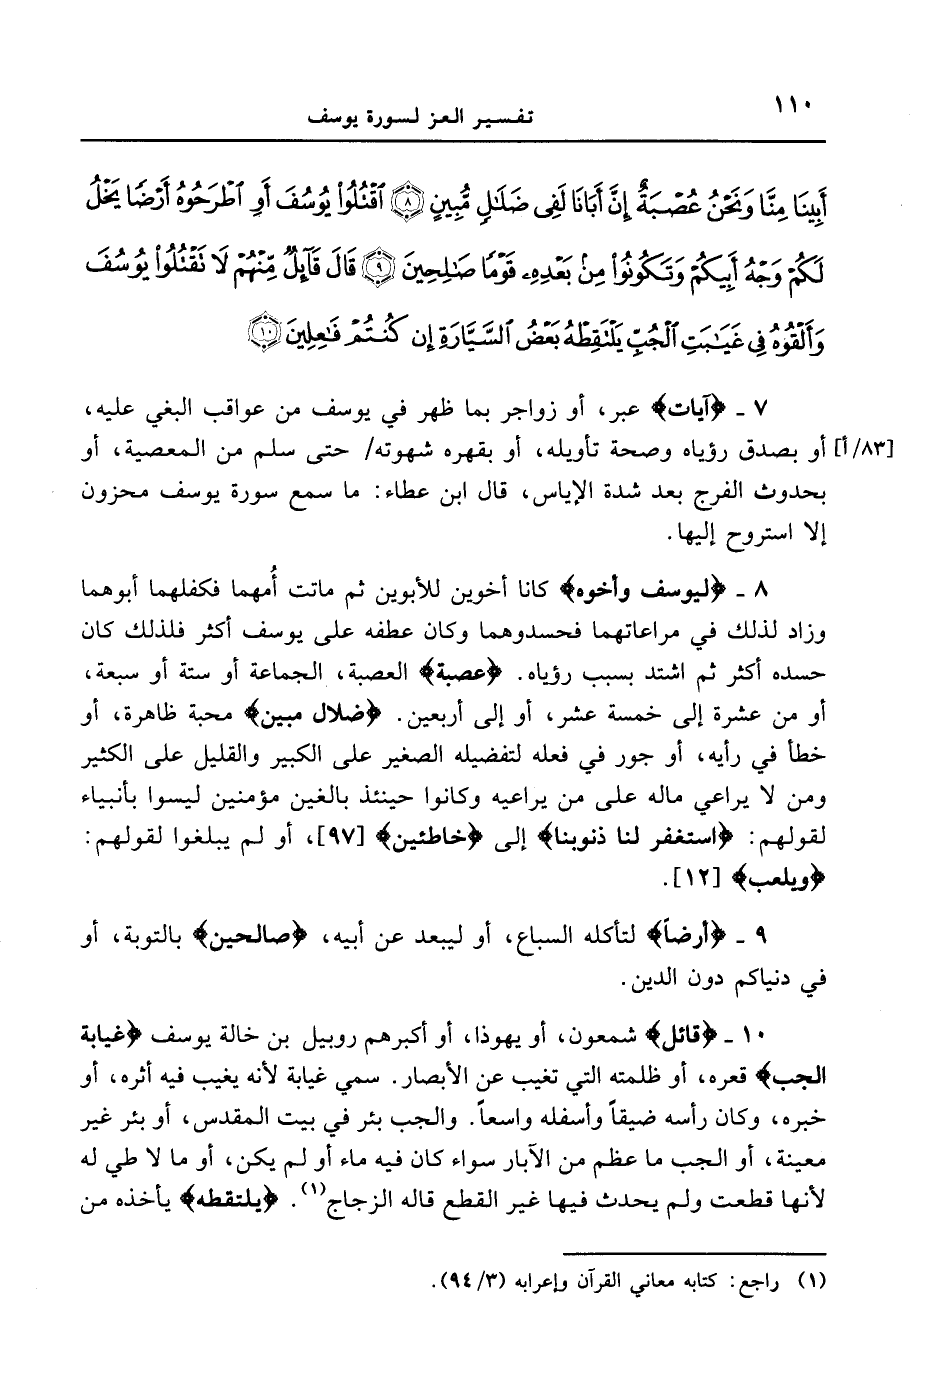 ١١٠
تفسير العز لسورة يوسف
أَبِينَا مِنَّا وَنَحْنُ عُصْبَةٌ إِنَّ أَبَانَا لَفِى ضَلَـٰلٍ مُّبِينٍ ٨ ٱقْتُلُوا۟ يُوسُفَ أَوِ ٱطْرَحُوهُ أَرْضًا يَخْلُ
لَكُمْ وَجْهُ أَبِيكُمْ وَتَكُونُوا۟ مِنۢ بَعْدِهِۦ قَوْمًا صَـٰلِحِينَ ٩ قَالَ قَآئِلٌ مِّنْهُمْ لَا تَقْتُلُوا۟ يُوسُفَ
وَأَلْقُوهُ فِى غَيَـٰبَتِ ٱلْجُبِّ يَلْتَقِطْهُ بَعْضُ ٱلسَّيَّارَةِ إِن كُنتُمْ فَـٰعِلِينَ ١٠
٧ ـ ﴿آيات﴾ عبر، أو زواجر بما ظهر في يوسف من عواقب البغي عليه،
[٨٣/أ] أو بصدق رؤياه وصحة تأويله، أو بقهره شهوته/ حتى سلم من المعصية، أو
بحدوث الفرج بعد شدة الإياس، قال ابن عطاء: ما سمع سورة يوسف محزون
إلا استروح إليها.
٨ ـ ﴿ليوسف وأخوه﴾ كانا أخوين للأبوين ثم ماتت أُمهما فكفلهما أبوهما
وزاد لذلك في مراعاتهما فحسدوهما وكان عطفه على يوسف أكثر فلذلك كان
حسده أكثر ثم اشتد بسبب رؤياه. ﴿عصبة﴾ العصبة، الجماعة أو ستة أو سبعة،
أو من عشرة إلى خمسة عشر، أو إلى أربعين. ﴿ضلال مبين﴾ محبة ظاهرة، أو
خطأ في رأيه، أو جور في فعله لتفضيله الصغير على الكبير والقليل على الكثير
ومن لا يراعي ماله على من يراعيه وكانوا حينئذ بالغين مؤمنين ليسوا بأنبياء
لقولهم: ﴿استغفر لنا ذنوبنا﴾ إلى ﴿خاطئين﴾ [٩٧]، أو لم يبلغوا لقولهم:
﴿ويلعب﴾ [١٢].
٩ ـ ﴿أرضاً﴾ لتأكله السباع، أو ليبعد عن أبيه، ﴿صالحين﴾ بالتوبة، أو
في دنياكم دون الدين.
١٠ ـ ﴿قائل﴾ شمعون، أو يهوذا، أو أكبرهم روبيل بن خالة يوسف ﴿غيابة
الجب﴾ قعره، أو ظلمته التي تغيب عن الأبصار. سمي غيابة لأنه يغيب فيه أثره، أو
خبره، وكان رأسه ضيقاً وأسفله واسعاً. والجب بئر في بيت المقدس، أو بئر غير
معينة، أو الجب ما عظم من الآبار سواء كان فيه ماء أو لم يكن، أو ما لا طي له
لأنها قطعت ولم يحدث فيها غير القطع قاله الزجاج(١). ﴿يلتقطه﴾ يأخذه من
(١) راجع: كتابه معاني القرآن وإعرابه (٩٤/٣).